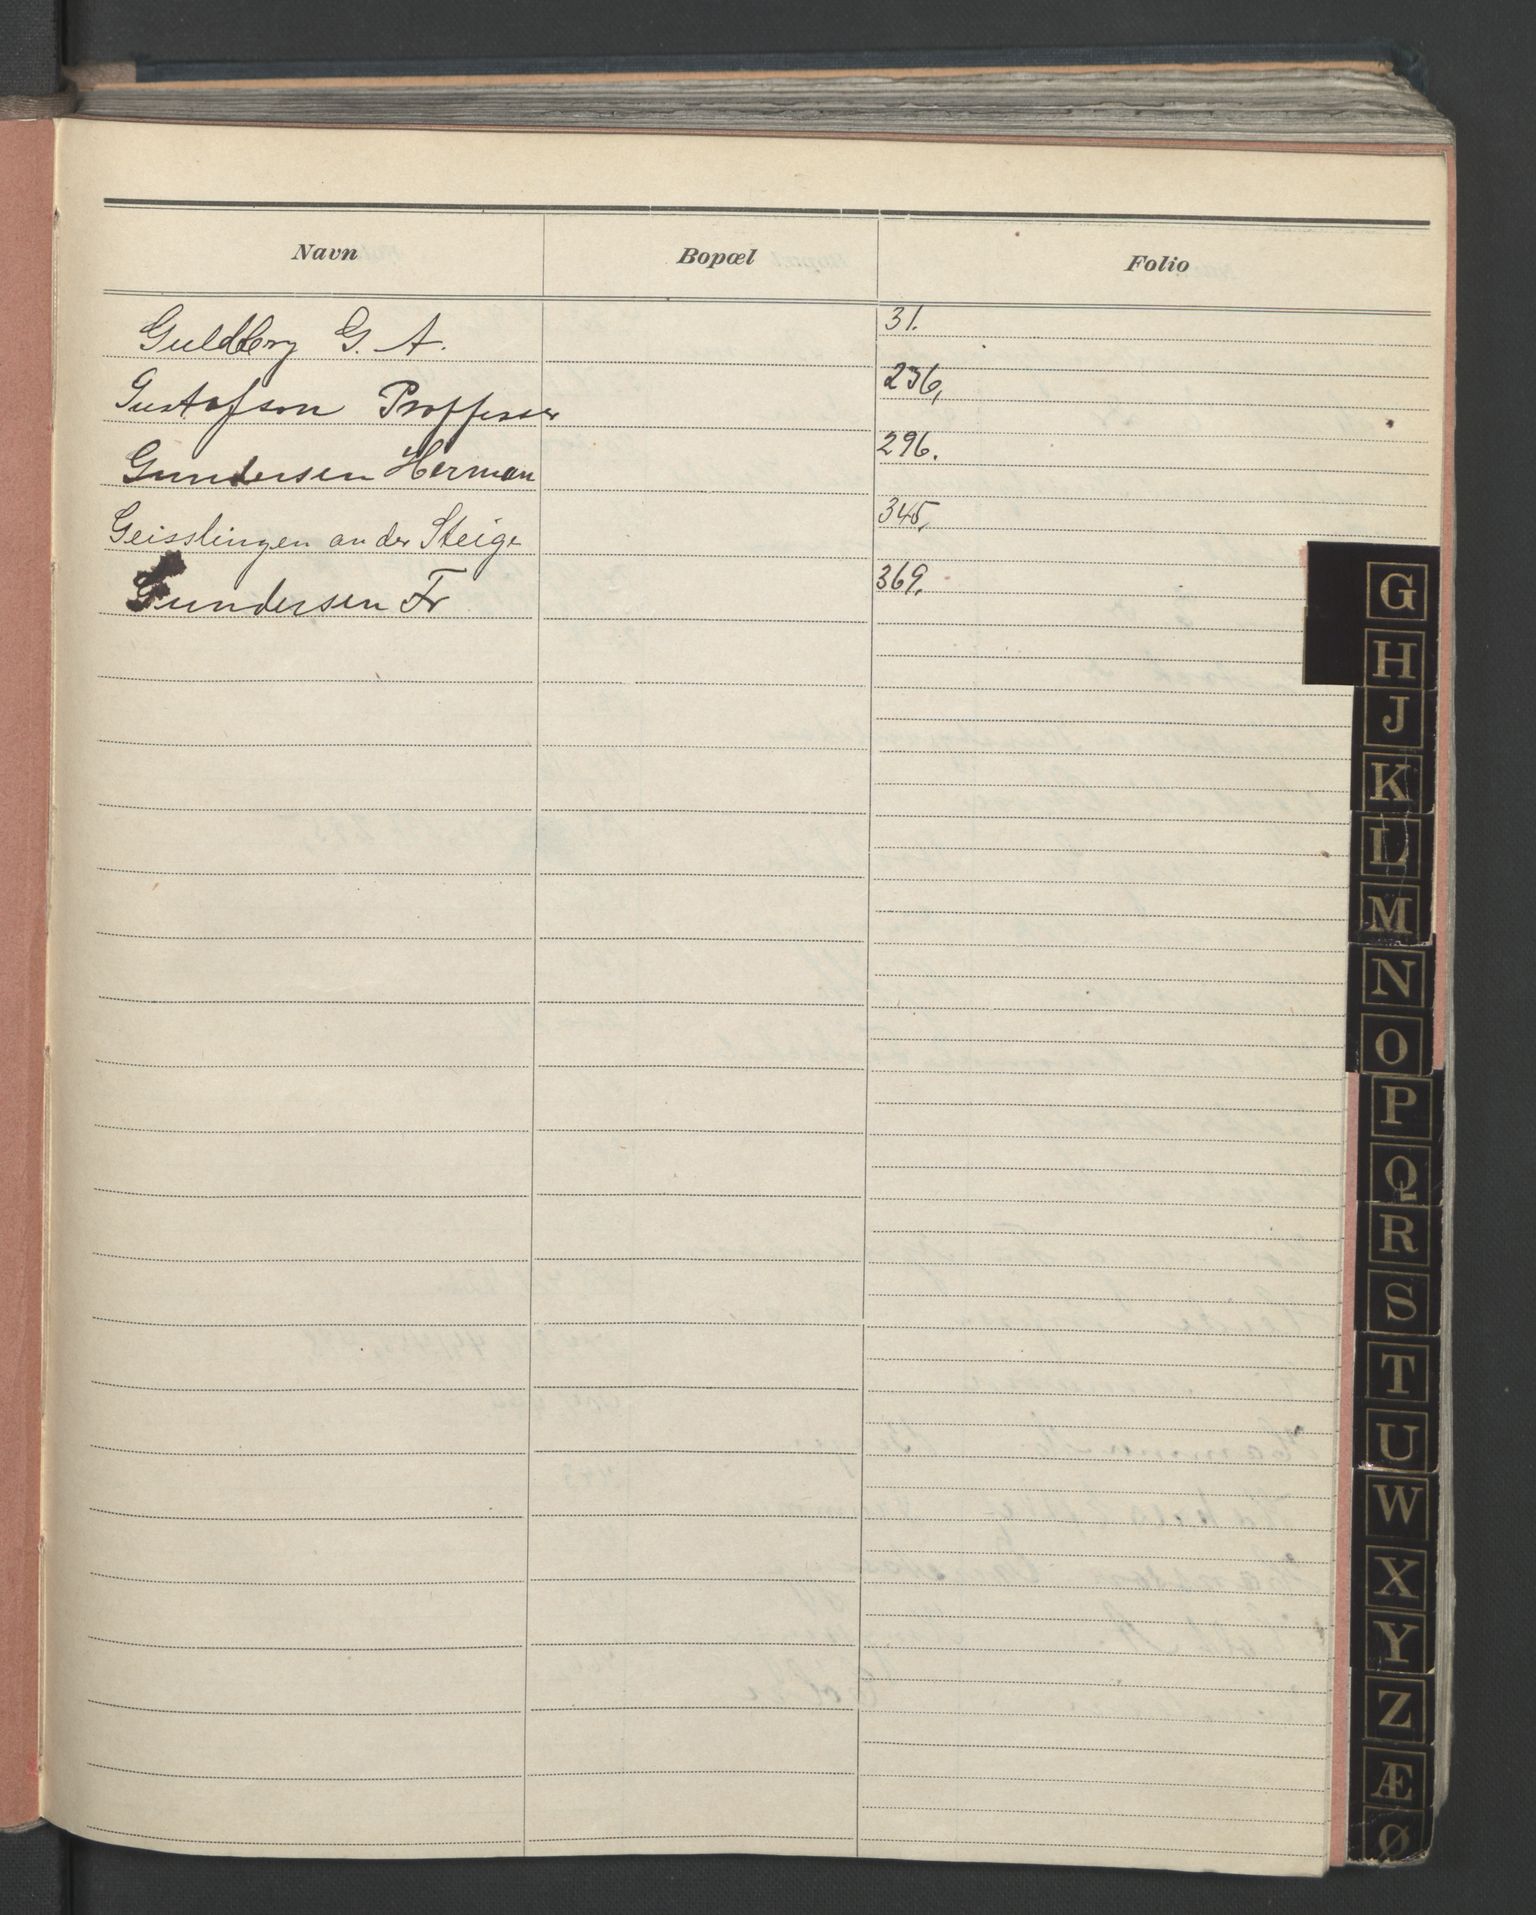 Navn Bopæl Folio
Guldberg G. A. 31.
Gustafson Proffessor 236,
Gundersen Herman 296.
Geisslingen an der Steige 345,
Gundersen Fr 369.
G
H
J
K
L
M
N
O
P
Q
R
S
T
U
W
X
Y
Z
Æ
Ø